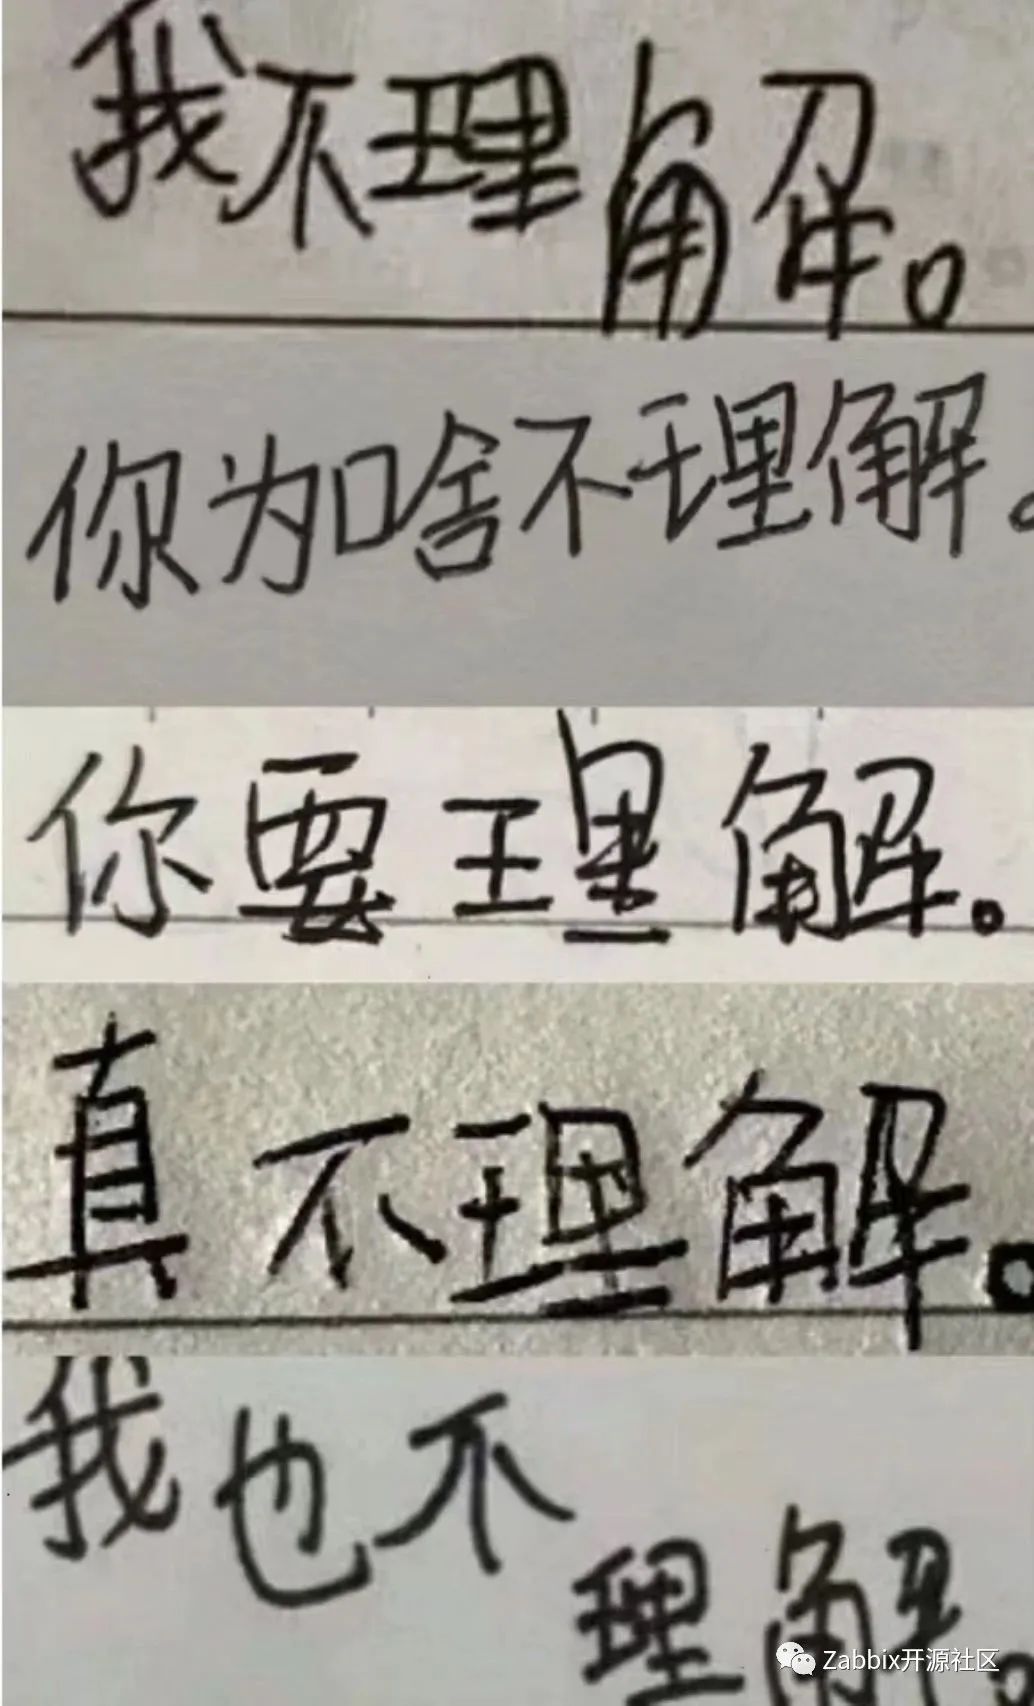 我不理解。
你为啥不理解。
你要理解。
真不理解。
我也不
理解。
Zabbix开源社区